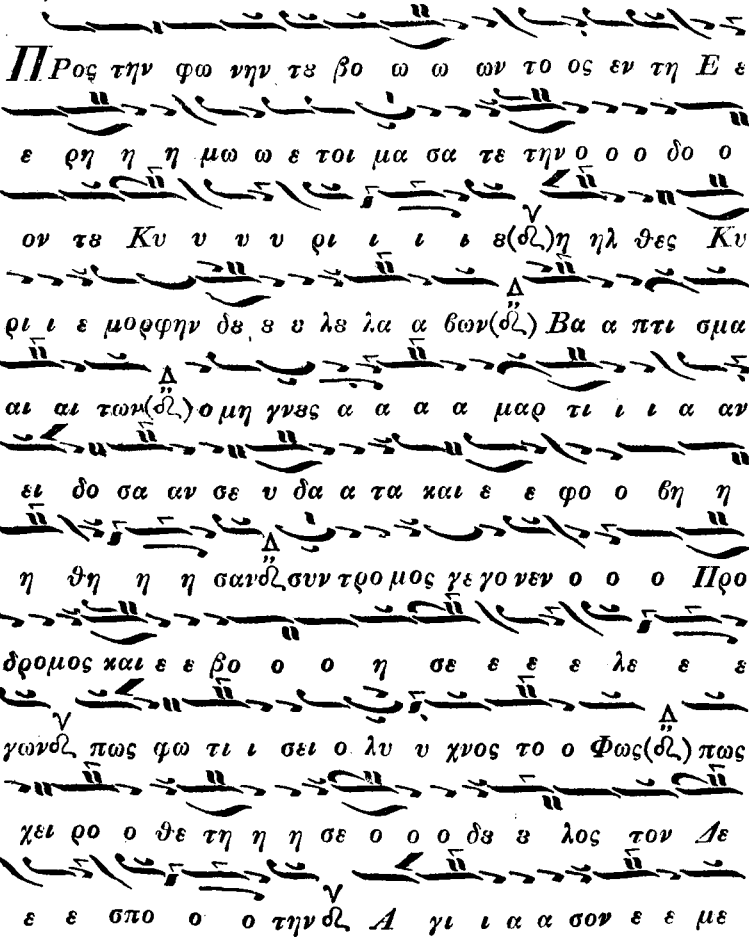 ΠΡος την φω νην τȣ βο ω ω ων το ος εν τη Ε ε
ε ρη η η μω ω ε τοι μα σα τε την ο ο ο δο ο
ον τȣ Κυ υ υ υ ρι ι ι ι ȣ(δι)η ηλ θες Κυ
ρι ι ε μορφην δȣ ȣ ȣ λȣ λα α βων(δι) Βα α πτι σμα
αι αι των(δι) ο μη γνȣς α α α α μαρ τι ι ι α αν
ει δο σα αν σε υ δα α τα και ε ε φο ο βη η
η θη η η σαν δι συν τρο μος γε γο νεν ο ο ο Προ
δρομος και ε ε βο ο ο η σε ε ε ε λε ε ε
γων δι πως φω τι ι σει ο λυ υ χνος το ο Φως(δι) πως
χει ρο ο θε τη η η σε ο ο ο δȣ ȣ λος τον Δε
ε ε σπο ο ο την δι Α γι ι α α σον ε ε με